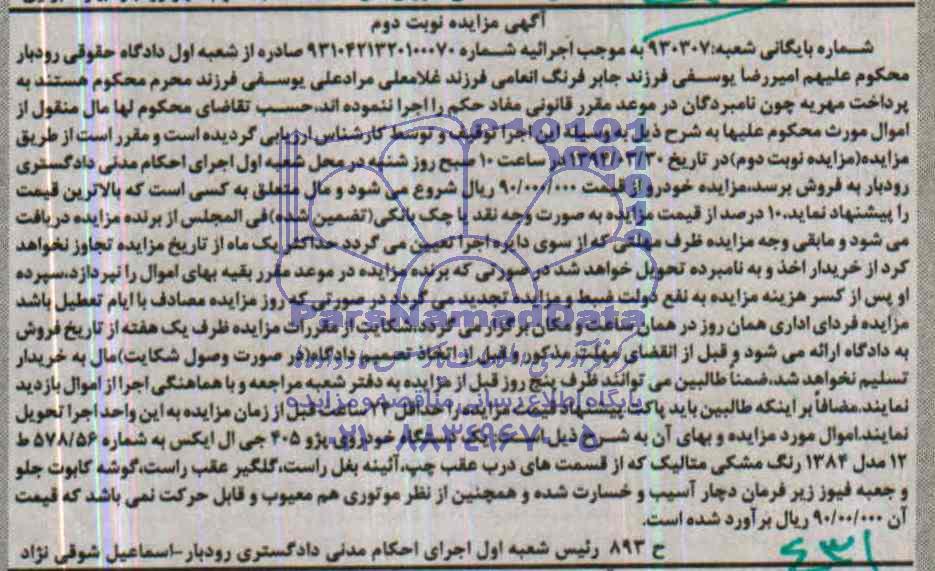 آگهی مزایده نوبت دوم
شماره بایگانی شعبه:۹۳۰۳۰۷ به موجب اجرائیه شماره ۹۳۱۰۴۲۱۳۲۰۱۰۰۰۷۰ صادره از شعبه اول دادگاه حقوقی رودبار
محکوم علیهم امیررضا یوسفی فرزند جابر فرنگ انعامی فرزند غلامعلی مرادعلی یوسفی فرزند محرم محکوم هستند به
پرداخت مهریه چون نامبردگان در موعد مقرر قانونی مفاد حکم را اجرا ننموده اند،حسب تقاضای محکوم لها مال منقول از
اموال مورث محکوم علیها به شرح ذیل به وسیله این اجرا توقیف و توسط کارشناس ارزیابی گردیده است و مقرر است از طریق
مزایده(مزایده نوبت دوم)در تاریخ ۱۳۹۴/۰۳/۳۰ در ساعت ۱۰ صبح روز شنبه در محل شعبه اول اجرای احکام مدنی دادگستری
رودبار به فروش برسد.مزایده خودرو از قیمت ۹۰/۰۰۰/۰۰۰ ریال شروع می شود و مال متعلق به کسی است که بالاترین قیمت
را پیشنهاد نماید.۱۰ درصد از قیمت مزایده به صورت وجه نقد یا چک بانکی(تضمین شده)فی المجلس از برنده مزایده دریافت
می شود و مابقی وجه مزایده ظرف مهلتی که از سوی دایره اجرا تعیین می گردد حداکثر یک ماه از تاریخ مزایده تجاوز نخواهد
کرد از خریدار اخذ و به نامبرده تحویل خواهد شد در صورتی که برنده مزایده در موعد مقرر بقیه بهای اموال را نپردازد،سپرده
او پس از کسر هزینه مزایده به نفع دولت ضبط و مزایده تجدید می گردد در صورتی که روز مزایده مصادف با ایام تعطیل باشد
مزایده فردای اداری همان روز در همان ساعت و مکان برگزار می گردد.شکایت از مقررات مزایده ظرف یک هفته از تاریخ فروش
به دادگاه ارائه می شود و قبل از انقضای مهلت مذکور و قبل از اتخاذ تصمیم دادگاه(در صورت وصول شکایت)مال به خریدار
تسلیم نخواهد شد.ضمناً طالبین می توانند ظرف پنج روز قبل از مزایده به دفتر شعبه مراجعه و با هماهنگی اجرا از اموال بازدید
نمایند.مضافاً بر اینکه طالبین باید پاکت پیشنهاد قیمت مزایده را حداقل ۲۴ ساعت قبل از زمان مزایده به این واحد اجرا تحویل
نمایند.اموال مورد مزایده و بهای آن به شرح ذیل است:یک دستگاه خودروی پژو ۴۰۵ جی ال ایکس به شماره ۵۷۸/۵۶ ط
۱۲ مدل ۱۳۸۴ رنگ مشکی متالیک که از قسمت های درب عقب چپ،آئینه بغل راست،گلگیر عقب راست،گوشه کاپوت جلو
و جعبه فیوز زیر فرمان دچار آسیب و خسارت شده و همچنین از نظر موتوری هم معیوب و قابل حرکت نمی باشد که قیمت
آن ۹۰/۰۰/۰۰۰ ریال برآورد شده است.
ح ۸۹۳ رئیس شعبه اول اجرای احکام مدنی دادگستری رودبار-اسماعیل شوقی نژاد
ParsNamadData
پایگاه اطلاع رسانی مناقصه و مزایده
۰۲۱-۸۸۳۴۹۶۷۰-۵